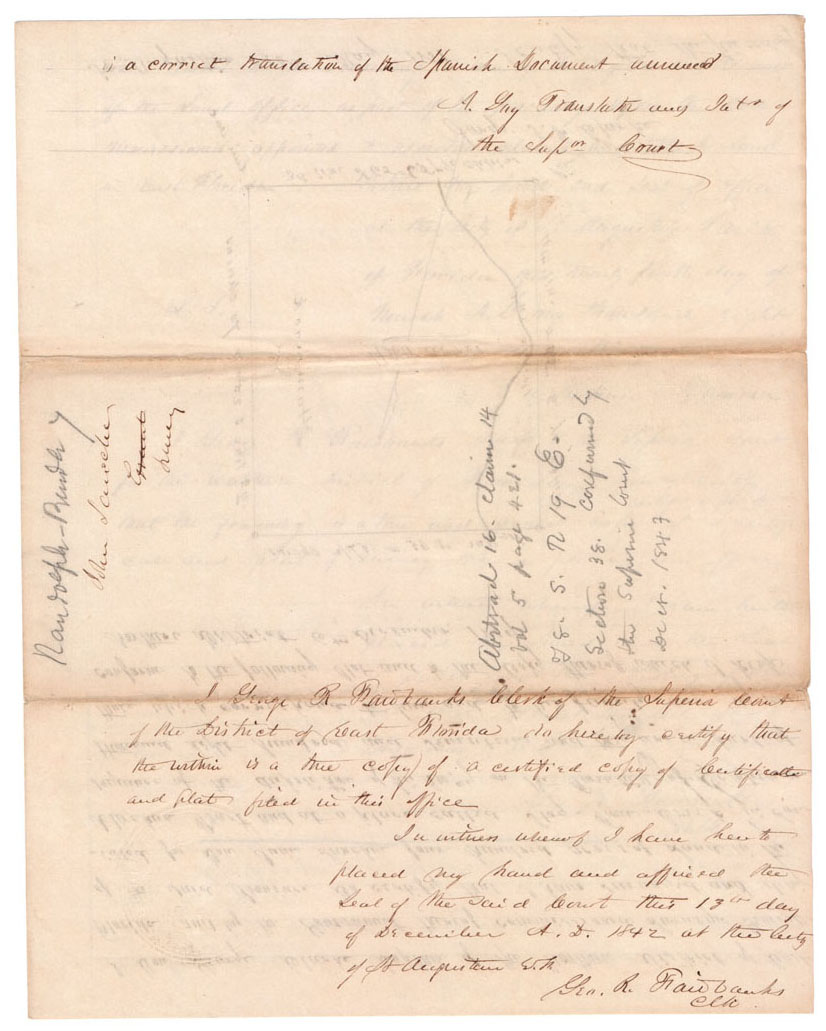 is a correct translation of the Spanish Document annexed
A. Gay Translator and Intr of
the Supor Court
Randolph-Bunder y
John
Grant
Abstract 16. claim 14
vol 5 page 421.
T 8. S. R 19 E.
Section 38. confirmed by
the Supreme Court
Dect. 1843
I George R Fairbanks Clerk of the Superior Court
of the District of East Florida do hereby certify that
the within is a true copy of a certified copy of Certificate
and plat filed in this office
In witness whereof I have hereto
placed my hand and affixed the
Seal of the said Court this 13th day
of December A. D. 1842 at the City
of St Augustine
Geo. R. Fairbanks
Clk